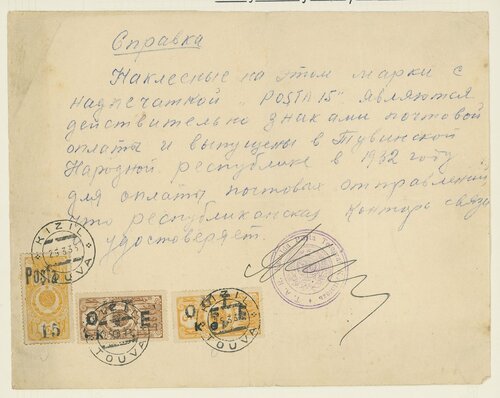 Справка
Наклееные на этом марки с
надпечаткой „POSTA 15" являются
действительно знаками почтовой
оплаты и выпущены в Тувинской
Народной республике в 1932 году
для оплаты почтовых отправлений,
что республиканская Контора связи
удостоверяет.
KIZIL
23.8.35
TOUVA
Posta
15
KIZIL
TOUVA
KIZIL
TOUVA